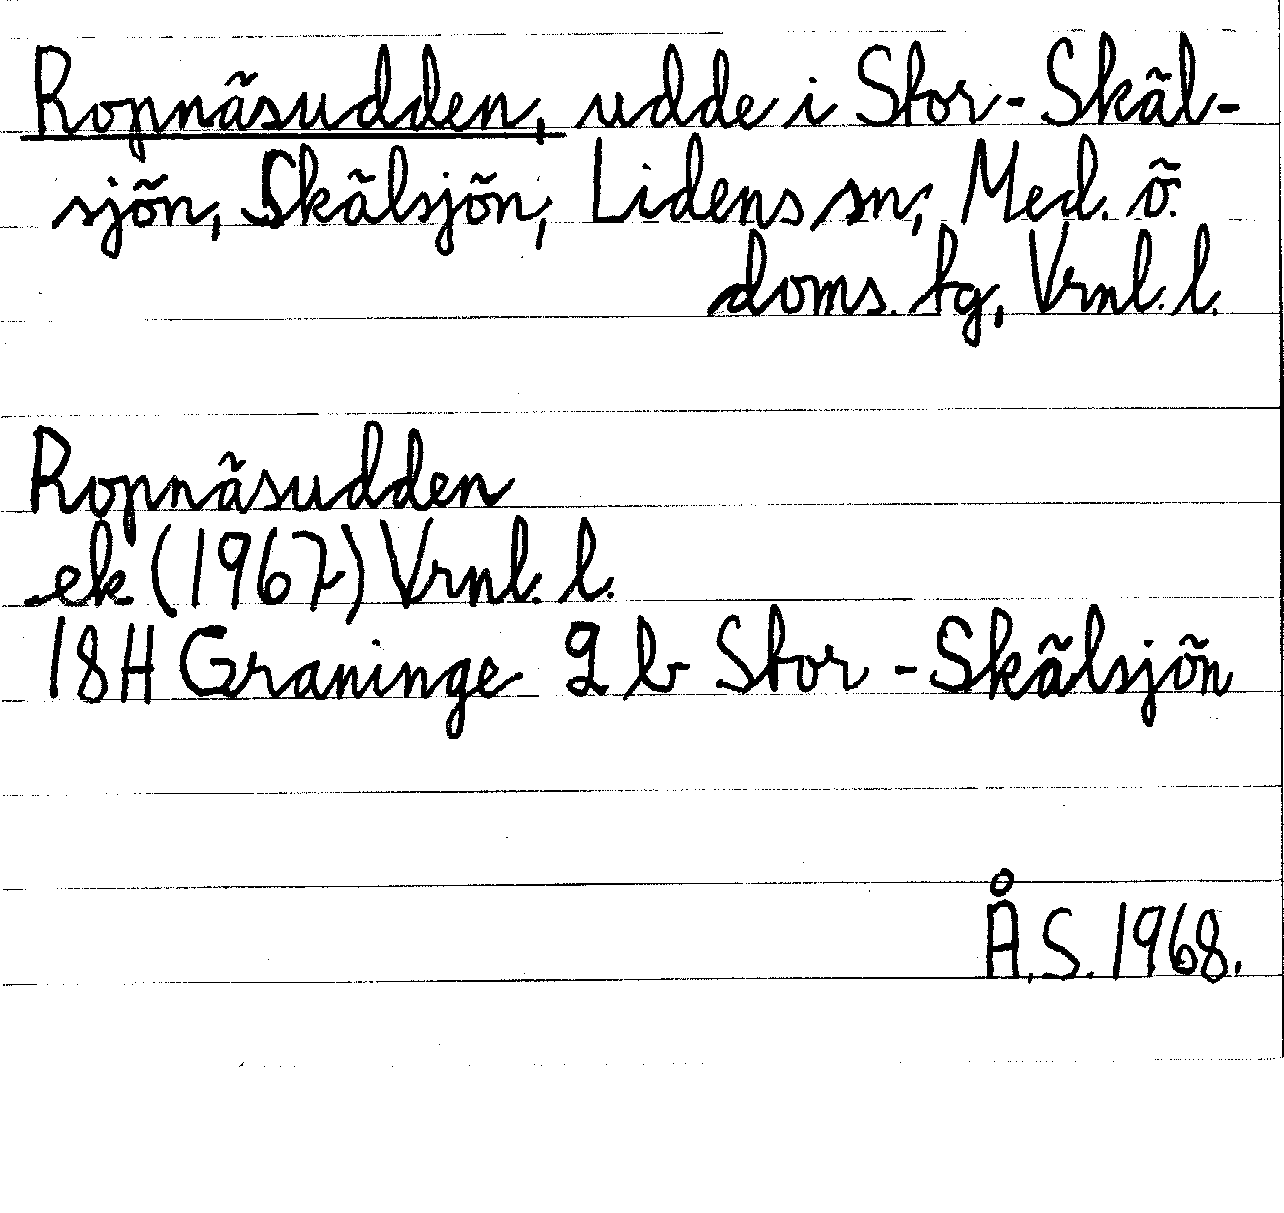 Ropnäsudden, udde i Stor-Skäl-
sjön, Skälsjön, Lidens sn, Med. ö.
doms. tg, Vrnl. l.
Ropnäsudden
ek (1967) Vrnl. l.
18H Graninge 2 b Stor-Skälsjön
Å.S. 1968.